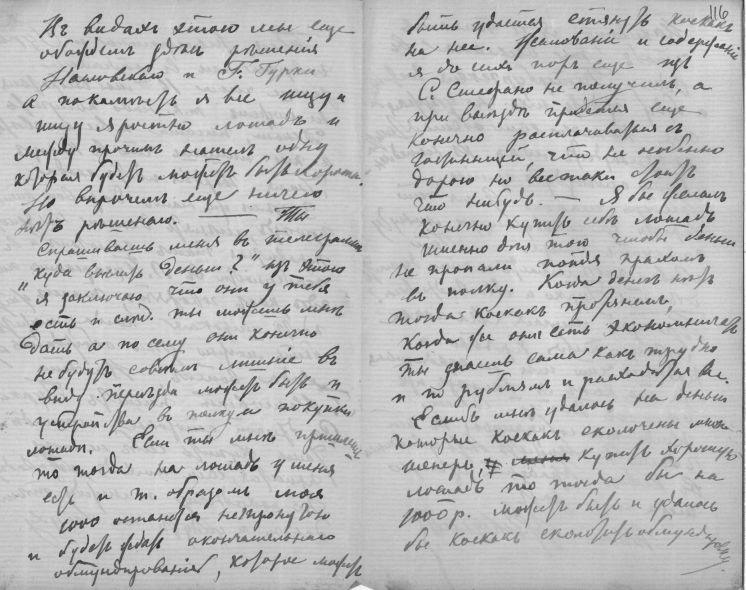 Въ видахъ этого мы еще
обождемъ рѣшенія
и Г. Гурки
а покамѣстъ я все ищу и
ищу яростно лошадь и
между прочимъ нашелъ одну
которая будетъ можетъ быть хороша.
Но впрочемъ еще ничего
нѣтъ рѣшеннаго. — Ты
спрашиваешь меня въ телеграммѣ
"куда выслать деньги?" изъ этого
я заключаю что они у тебя
есть и слѣд. ты можешь мнѣ
дать а по сему они конечно
не будутъ совсѣмъ лишніе въ
виду переѣзда можетъ быть и
устройства въ полку и покупки
лошади. Если ты мнѣ пришлешь
то тогда на лошадь у меня
есть и т. образомъ моя
1000 останется нетронутою
и будетъ ждать окончательнаго
обмундированія, которое можетъ
116
быть удастся стянуть коекакъ
на нее. Жалованія и содержаніе
я до сихъ поръ еще изъ
С. Стефано не получилъ, а
при выѣздѣ придется еще
конечно расплачиваться съ
гостинницей, что не особенно
дорого но всетаки стоитъ
что нибудь. — Я бы желалъ
конечно купить себѣ лошадь
именно для того чтобы деньги
не пропали попавъ прахомъ
въ полку. Когда денегъ нѣтъ
тогда коекакъ протянемъ,
когда же они есть экономничать
ты знаешь сама какъ трудно
и по рублямъ и расходятся все.
Еслибъ мнѣ удалось на деньги
которые коекакъ сколочены мною
теперь, купить хорошую
лошадь то тогда бы на
1000 р. можетъ быть и удалось
бы коекакъ сколотить обмундировку